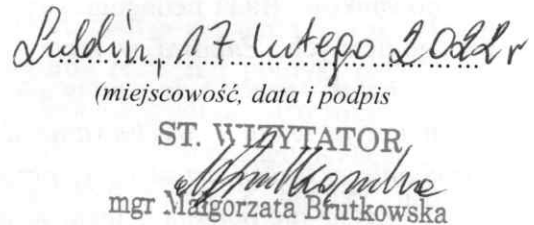 Lublin, 17 lutego 2022 r
(miejscowość, data i podpis
ST. WIZYTATOR
mgr Małgorzata Brutkowska